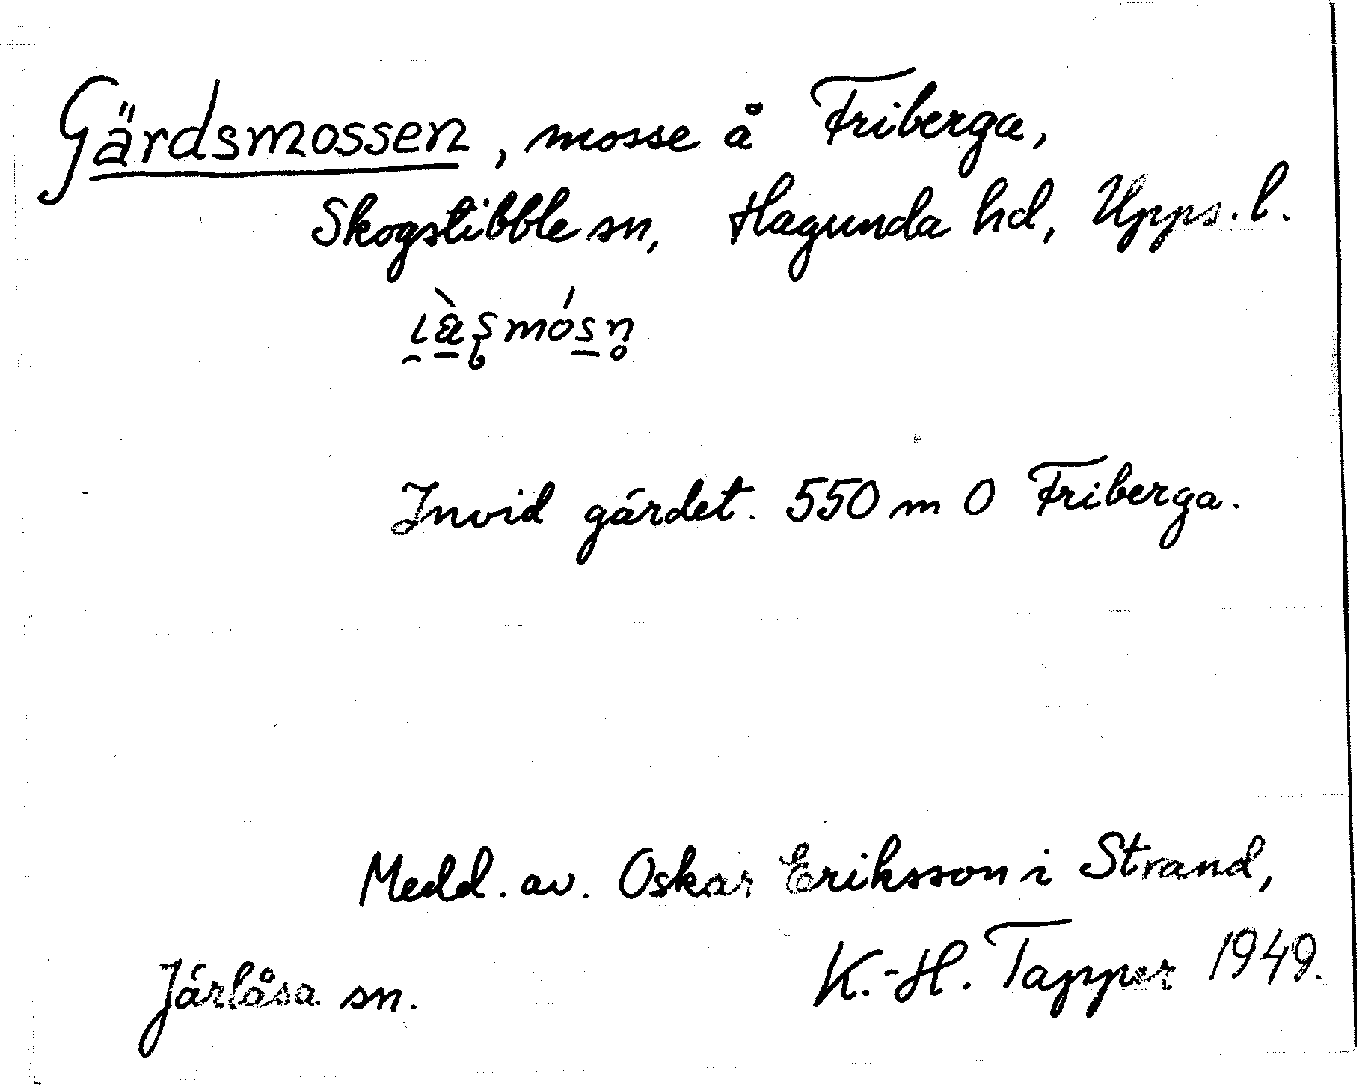 Gärdsmossen, mosse å Friberga,
Skogstibble sn, Hagunda hd, Upps. l.
Invid gärdet. 550 m O Friberga.
Medd. av. Oskar Eriksson i Strand,
Järlåsa sn. K.-H. Tapper 1949.